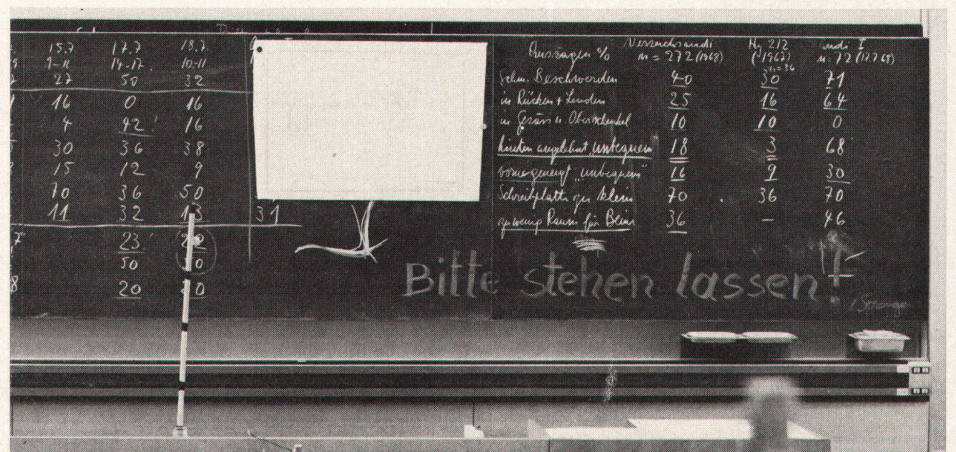 15.7. 17.7 18.7.
9-11 14-17. 10-11
27 50 32
16 0 16
4 42! 16
30 36 38
15 12 9
70 36 50
11 32 13 31
23!
50
20
Aussagen % Versuchsaudi H 212 audi I
n = 272 (1968) (1967) n. 72 (17.7.68)
n = 36
Schm. Beschwerden 40 30 71
in Rücken + Lenden 25 16 64
in Gesäss u. Oberschenkel 10 10 0
hinten angelehnt "unbequem" 18 3 68
vorne geneigt "unbequem" 16 9 30
Schreibplatte zu klein 70 36 70
zu wenig Raum für Beine 36 – 46
Bitte stehen lassen!